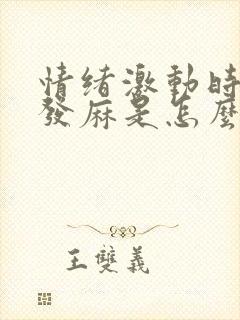 情绪激動時
發麻是怎麼
王雙義